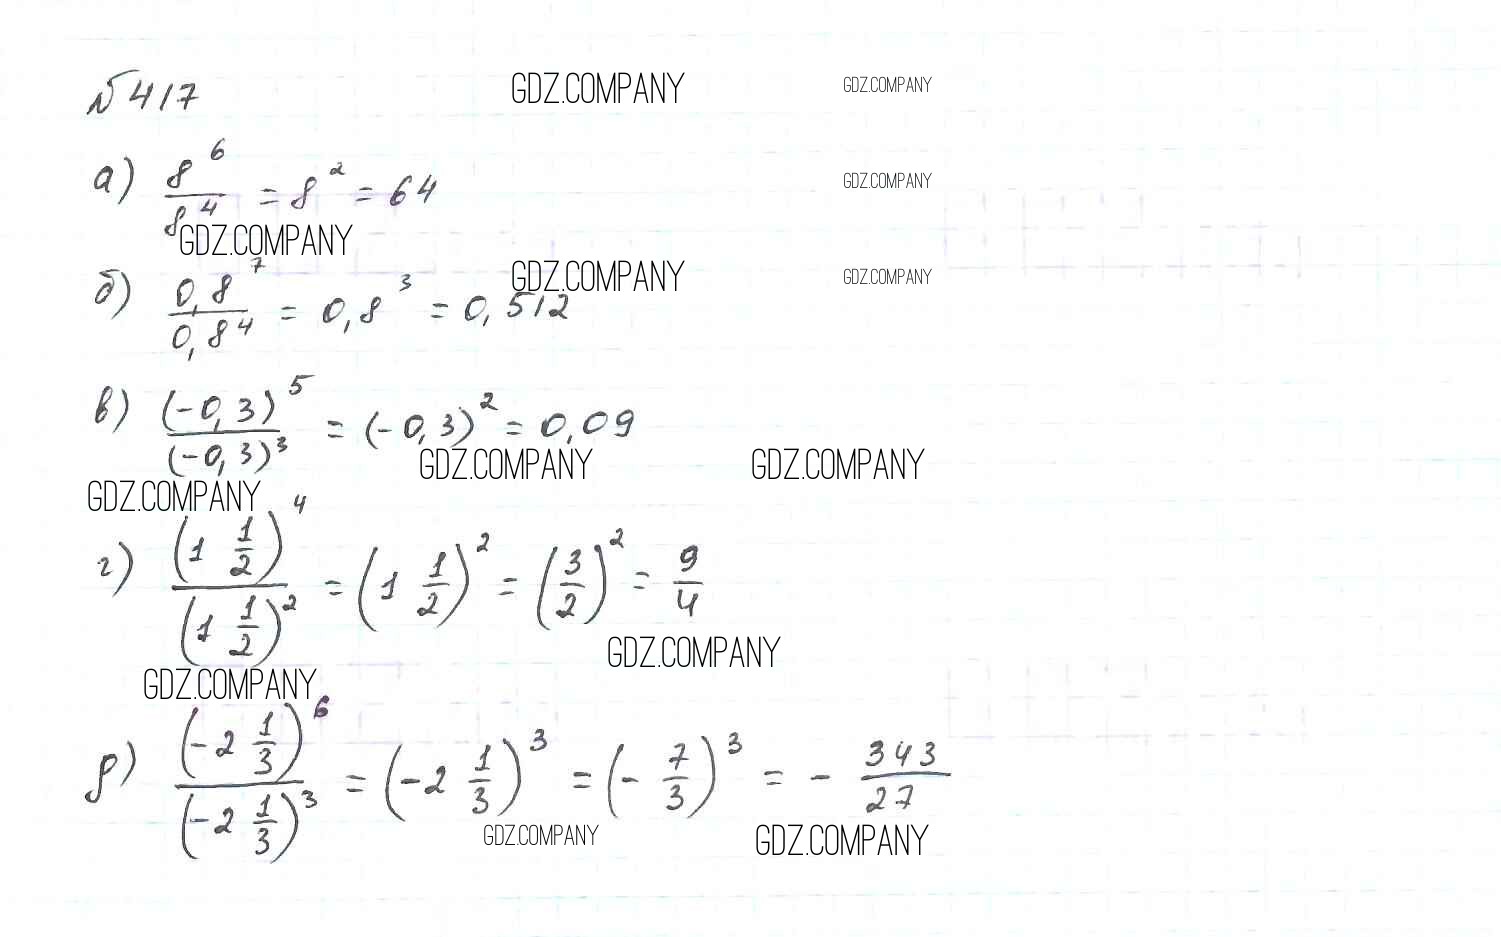 № 417
GDZ.COMPANY GDZ.COMPANY
а) 8^6 / 8^4 = 8^2 = 64
GDZ.COMPANY
GDZ.COMPANY
б) 0,8^7 / 0,8^4 = 0,8^3 = 0,512
GDZ.COMPANY GDZ.COMPANY
в) (-0,3)^5 / (-0,3)^3 = (-0,3)^2 = 0,09
GDZ.COMPANY GDZ.COMPANY
GDZ.COMPANY
г) (1 1/2)^4 / (1 1/2)^2 = (1 1/2)^2 = (3/2)^2 = 9/4
GDZ.COMPANY
GDZ.COMPANY
д) (-2 1/3)^6 / (-2 1/3)^3 = (-2 1/3)^3 = (- 7/3)^3 = - 343/27
GDZ.COMPANY GDZ.COMPANY